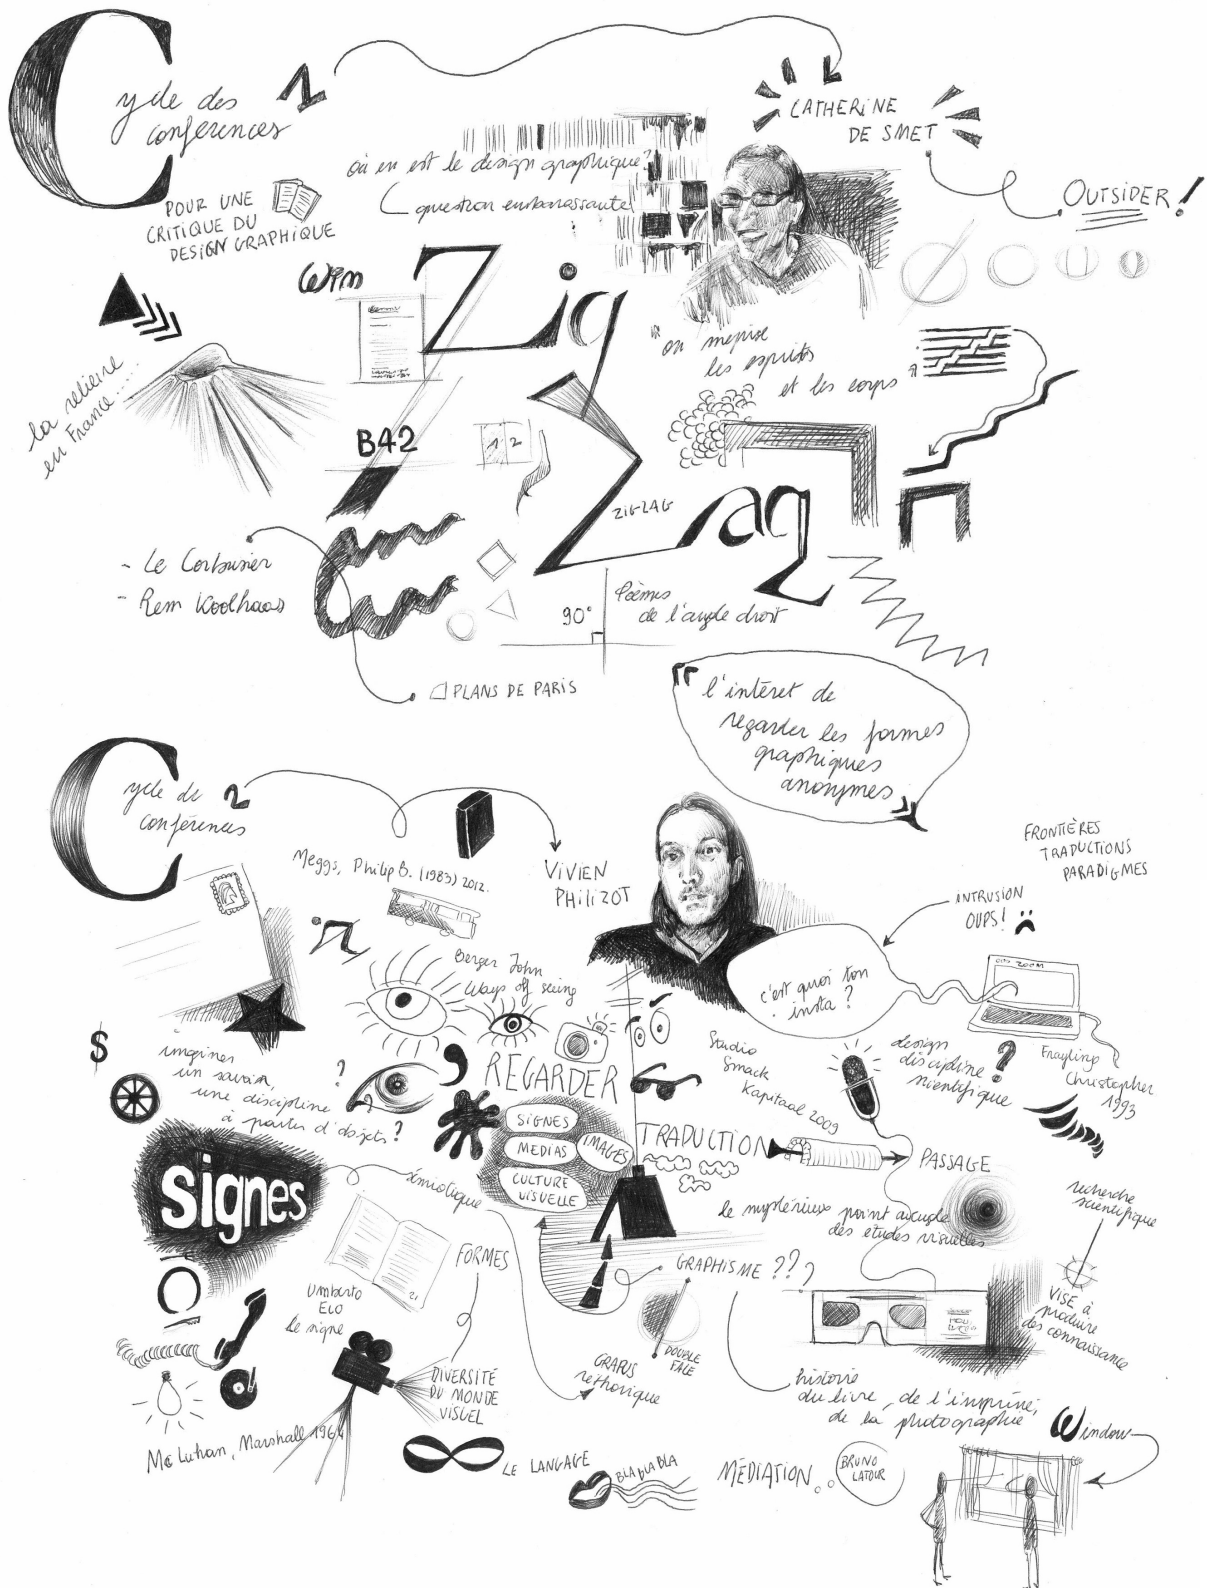 Cycle des
conférences
1
CATHERINE
DE SMET
OUTSIDER !
où en est le design graphique?
question embarassante!
POUR UNE
CRITIQUE DU
DESIGN GRAPHIQUE
Wim
Zig
Zag
ZIGZAG
"on méprise
les esprits
et les corps
"
la reliure
en France.....
B42
1 2
- Le Corbusier
- Rem Koolhaas
90°
Poèmes
de l'angle droit
PLANS DE PARIS
"l'intéret de
regarder les formes
graphiques
anonymes"
Cycle de 2
conférences
Meggs, Philip B. (1983) 2012.
VIVIEN
PHILIZOT
FRONTIÈRES
TRADUCTIONS
PARADIGMES
INTRUSION
OUPS!
c'est quoi ton
insta ?
ZOOM
Berger John
Ways of seing
$
imaginer
un savoir,
une discipline
à partir d'objets?
?
REGARDER
SIGNES
MEDIAS
IMAGES
CULTURE
VISUELLE
Studio
Smack
Kapitaal 2009
design
discipline
scientifique
?
Frayling
Christopher
1993
TRADUCTION
PASSAGE
signes
sémiotique
le mystérieux point aveugle
des etudes visuelles
recherche
scientifique
VISE à
produire
des connaissance
FORMES
21
Umberto
Eco
Le signe
GRAPHISME ???
DOUBLE
FACE
GRAPUS
réthorique
DIVERSITÉ
DU MONDE
VISUEL
histoire
du livre, de l'imprimé,
de la photographie
Window
Mc Luhan, Marshall 1964
LE LANGAGE
BLA BLA BLA
MÉDIATION
BRUNO
LATOUR